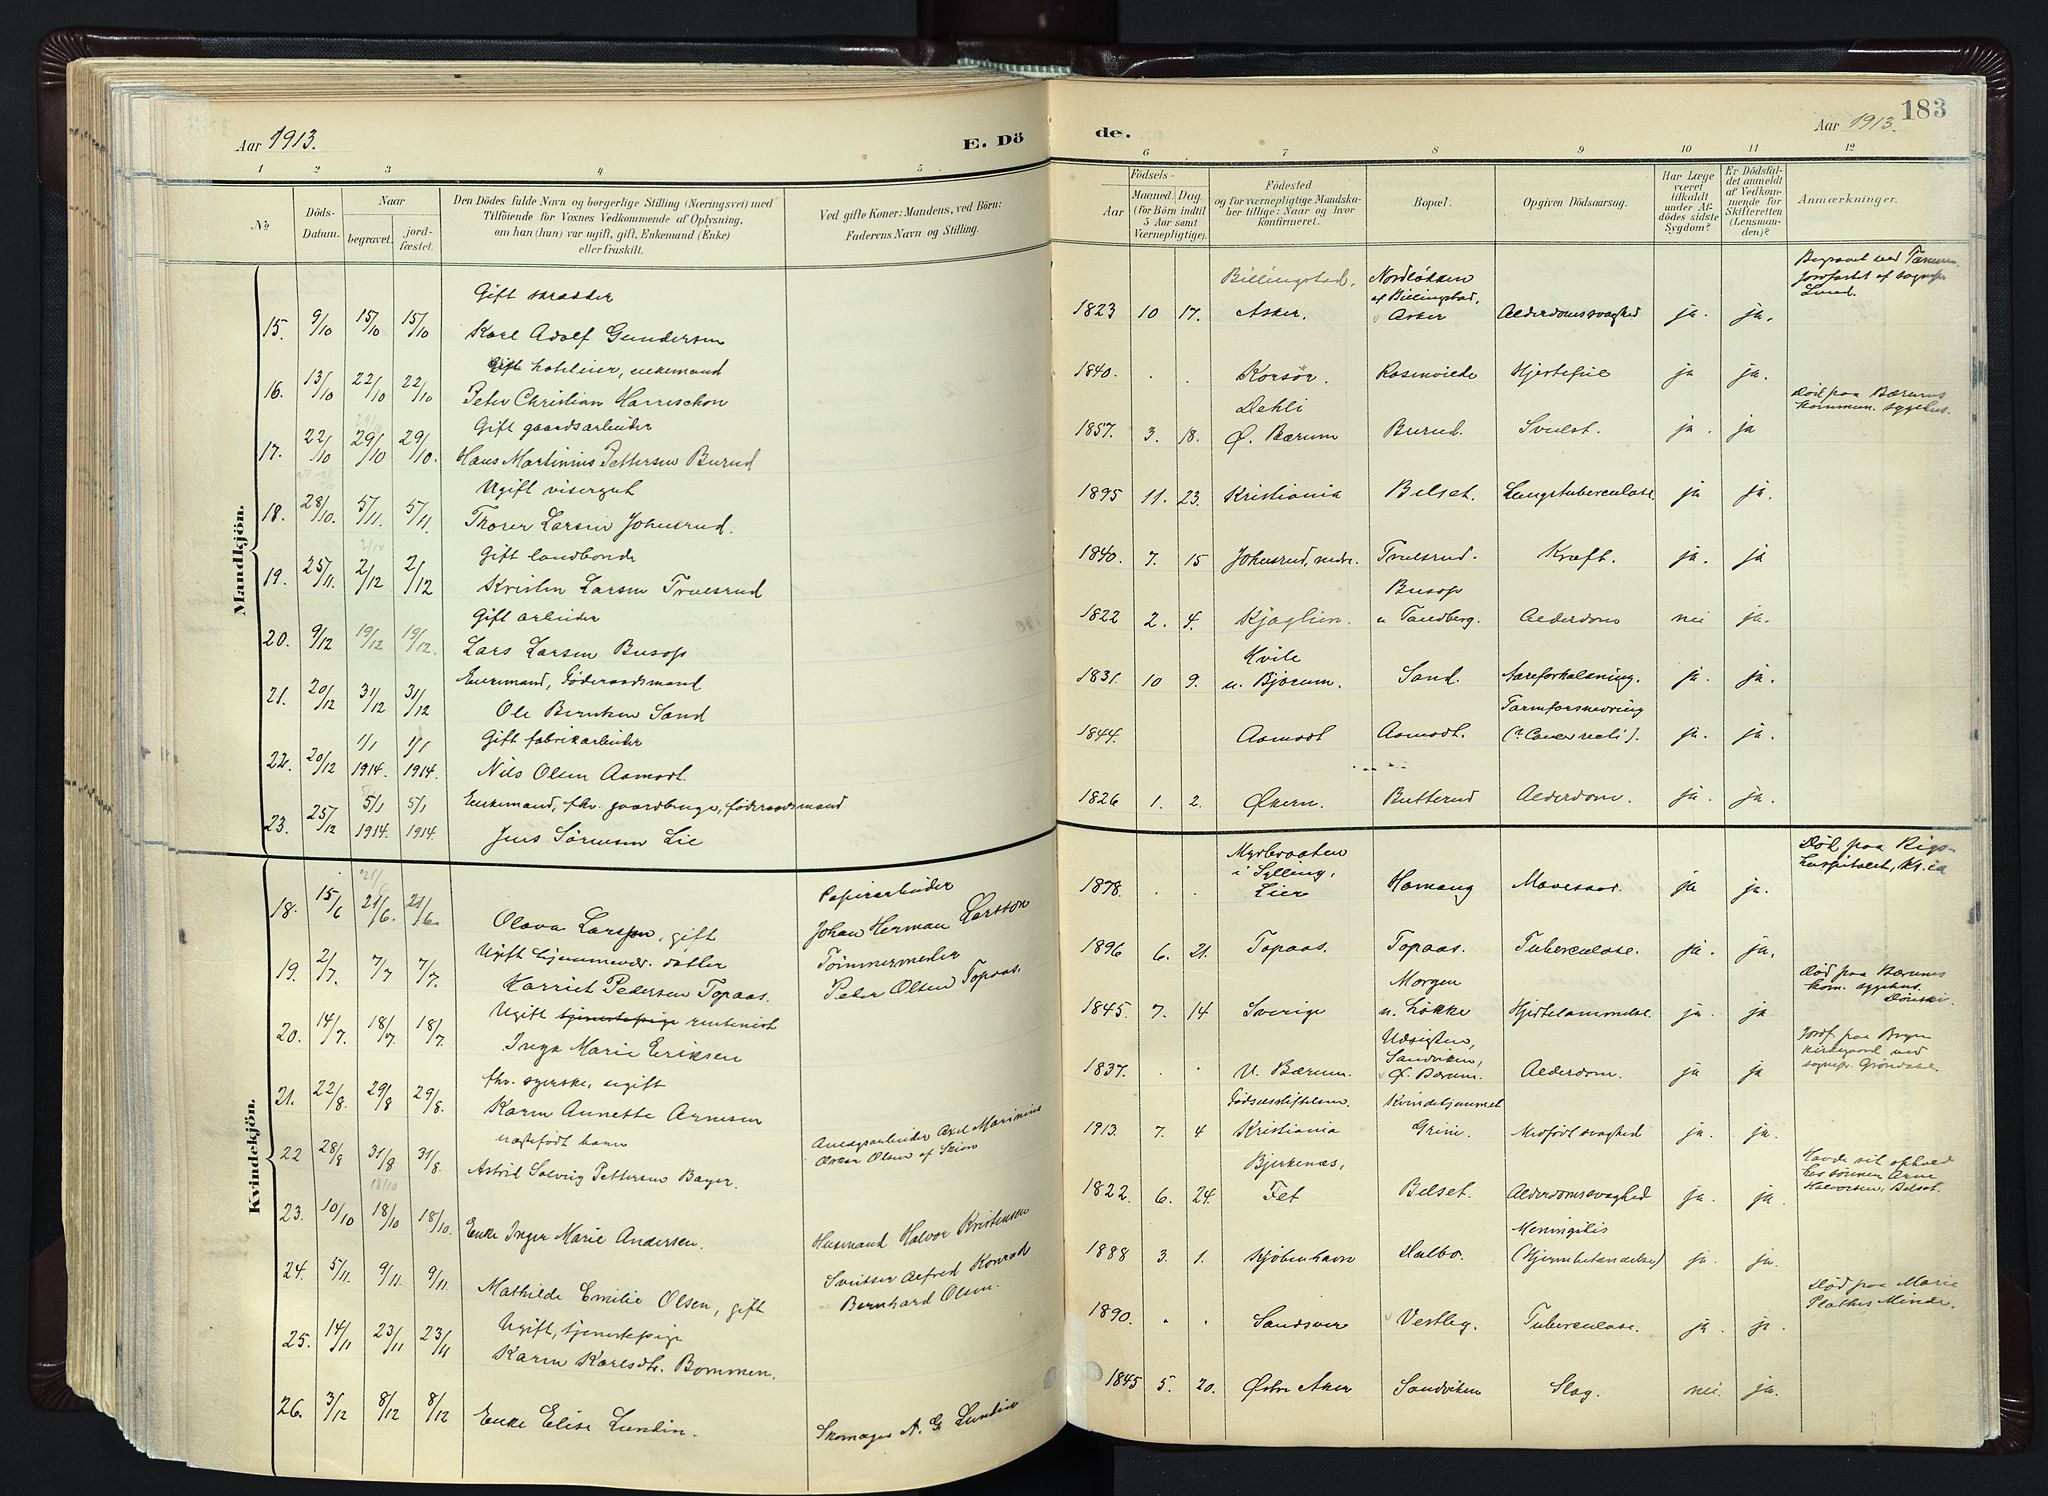 Aar 1913.
E. Dö
de.
Aar 1913.
183
1 2 3 4 5 6 7 8 9 10 11 12
№
Döds-
Datum.
Naar
begravet.
jord-
fæstet.
Den Dödes fulde Navn og borgerlige Stilling (Næringsvei) med
Tilföiende for Voxnes Vedkommende af Oplysning,
om han (hun) var ugift, gift, Enkemand (Enke)
eller fraskilt.
Ved gifte Koner: Mandens, ved Börn:
Faderens Navn og Stilling.
Födsels-
Aar
Maaned. Dag.
(for Börn indtil
5 Aar samt
Værnepligtige).
Födested
og for værnepligtige Mandska-
ber tillige: Naar og hvor
konfirmeret.
Bopæl.
Opgiven Dödsaarsag.
Har Læge
været
tilkaldt
under Af-
dödes sidste
Sygdom?
Er Dödsfal-
det anmeldt
af Vedkom-
mende for
Skifteretten
(Lensman-
den)?
Anmærkninger.
Mandkjön.
Gift skrædder Billingstad, Nordløkken Begravet ved Tanum.
af Billingstad, Jordfæstet af sognepr.
15. 9/10 15/10 15/10 Karl Adolf Gundersen 1823 10 17. Asker. Asker Alderdomssvaghed ja. ja. Lund.
Gift hoteleier, enkemand
16. 13/10 22/10 22/10 Peter Christian Harrischon 1840. . . Korsör. Rosenvilde Hjertefeil ja ja.
Gift gaardsarbeider Dehli Död paa Bærums
17. 22/10 29/10 29/10. Hans Martinius Pettersen Burud 1857. 3. 18. Ø. Bærum Burud. Svulst. ja. ja kommun. sygehus.
Ugift visergut
18. 28/10. 5/11. 5/11. Thorer Larsen Johnsrud. 1895 11. 23. Kristiania Belset. Lungetuberculose. ja ja.
Gift landbonde
19. 25/11. 2/12 2/12 Kristen Larsen Truesrud 1840. 7. 15 Johnsrud, nedre. Truesrud. Kræft. ja. ja
Gift arbeider Busop
20. 9/12 19/12 19/12. Lars Larsen Busop 1822 2. 4. Kjaglien. u Tandberg. Alderdom nei ja.
Enkemand, Föderaadsmand Kvile
21. 20/12 31/12 31/12 Ole Berntsen Sand 1831. 10 9. u. Bjørum. Sand. Aareforkalkning. ja. ja.
Gift fabrikarbeider Tarmforsnevring
22. 20/12 1/1 1914. 1/1 1914. Nils Olsen Aamodt. 1844. Aamodt Aamodt. (? Cancer recti). ja. ja.
Enkemand, fhv. gaardbruger, föderaadsmand
23. 25/12 5/1 1914. 5/1 1914 Jens Sörensen Lie 1826 1. 2. Økern. Butterud Alderdom. ja. ja.
Kvindekjön.
Papirarbeider Myrbraaten Död paa Rigs-
i Sylling, hospitalet, Kr.ia
18. 15/6 21/6. 21/6. Olava Larssen, gift Johan Herman Larsson 1878. . . Lier Hamang Mavesaar. ja ja.
Ugift hjemmevær. datter Tömmermester
19. 2/7. 7/7 7/7. Harriet Pedersen Topaas. Peter Olsen Topaas. 1896 6. 21. Topaas. Topaas. Tuberculose. ja. ja.
Ugift tjenestepige rentenist Morgen Död paa Bærums
kom. sygehus.
20. 14/7. 18/7 18/7. Inga Marie Eriksen 1845. 7. 14 Sverige u. Løkke Hjertelammelse. ja. ja Dönski.
fhv. syerske, ugift Udsigten, Jordf. paa Bryn
Sandviken, kirkegaard ved
21. 22/8. 29/8 29/8. Karen Annette Arnesen 1837. . . V. Bærum. Ø. Bærum. Alderdom. ja ja sognepr. Grøndahl.
uægtefödt barn Anlægsarbeider Axel Marinius Fødselsstiftelsen. Kvindehjemmet
22 28/8 31/8 31/8. Astrid Solveig Pettersen Bager. Oskar Olsen af Skien 1913. 7. 4 Kristiania Grini. Medfödt svaghed ja. ja.
Bjerkenæs, Havde sit ophold
hos sönnen Arne
23. 10/10 18/10 18/10. Enke Inger Marie Andersen. Husmand Halvor Kristensen 1822. 6. 24. Fet Belset. Alderdomssvaghed ja. ja Halvorsen, Belset.
Meningitis
24. 5/11. 9/11. 9/11 Mathilde Emilie Olsen, gift Sveitser Alfred Konrad 1888 3. 1. Kjøbenhavn Dalbo. (Hjernebetændelse) ja. ja.
Bernhard Olsen.
Ugift, tjenestepige Död paa Marie
25. 14/11 23/11 23/11 Karen Karlsdtr. Bommen. 1890. . . Sandsver Vestleg. Tuberculose. ja. ja. Plathes Minde.
26. 3/12 8/12 8/12 Enke Elise Lundin. Skomager A. G. Lundin 1845 5. 20. Østre Aker Sandviken Slag. nei. ja.